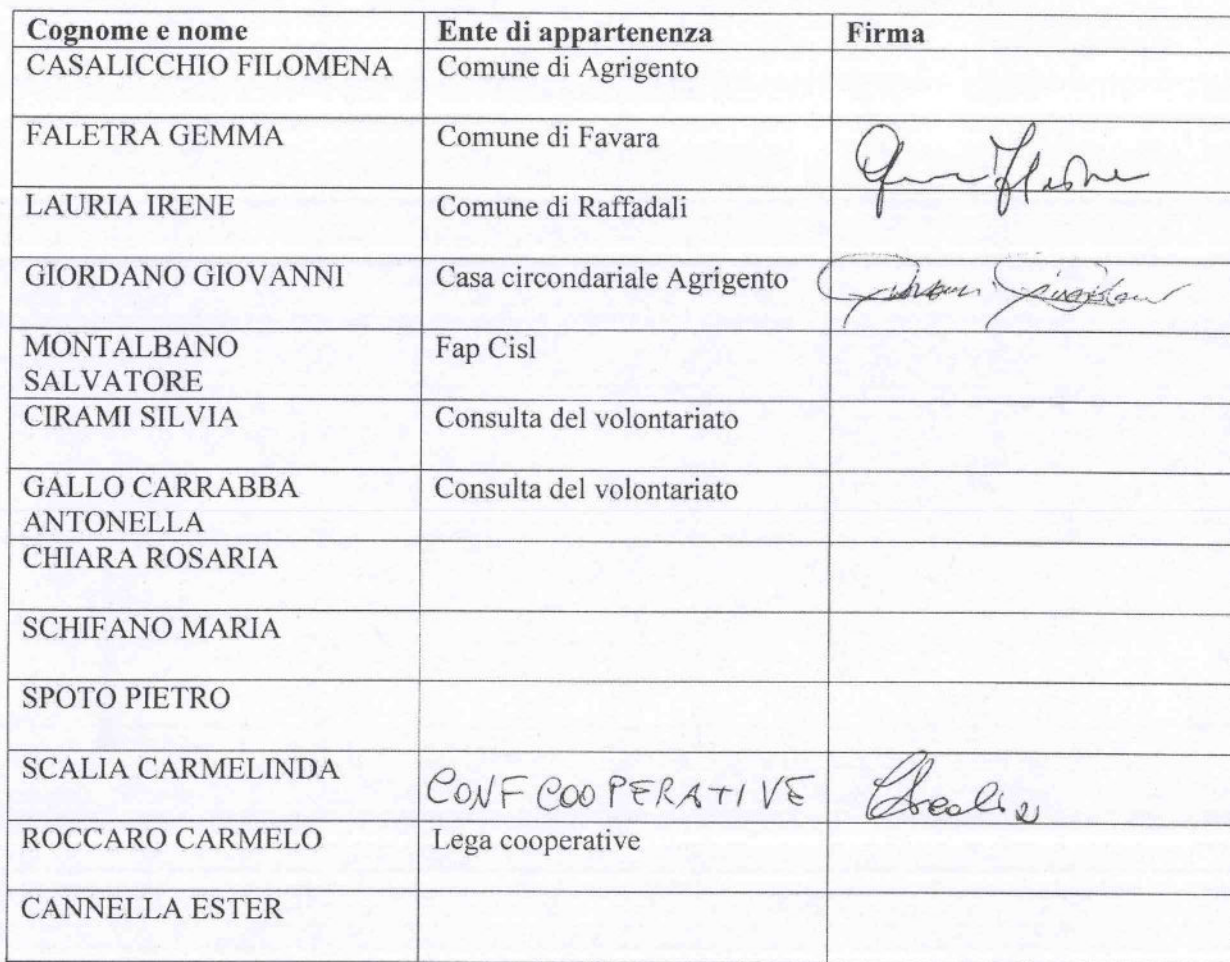 Cognome e nome Ente di appartenenza Firma
CASALICCHIO FILOMENA Comune di Agrigento
FALETRA GEMMA Comune di Favara
LAURIA IRENE Comune di Raffadali
GIORDANO GIOVANNI Casa circondariale Agrigento Giovanni Giordano
MONTALBANO Fap Cisl
SALVATORE
CIRAMI SILVIA Consulta del volontariato
GALLO CARRABBA Consulta del volontariato
ANTONELLA
CHIARA ROSARIA
SCHIFANO MARIA
SPOTO PIETRO
SCALIA CARMELINDA CONFCOOPERATIVE CScalia
ROCCARO CARMELO Lega cooperative
CANNELLA ESTER